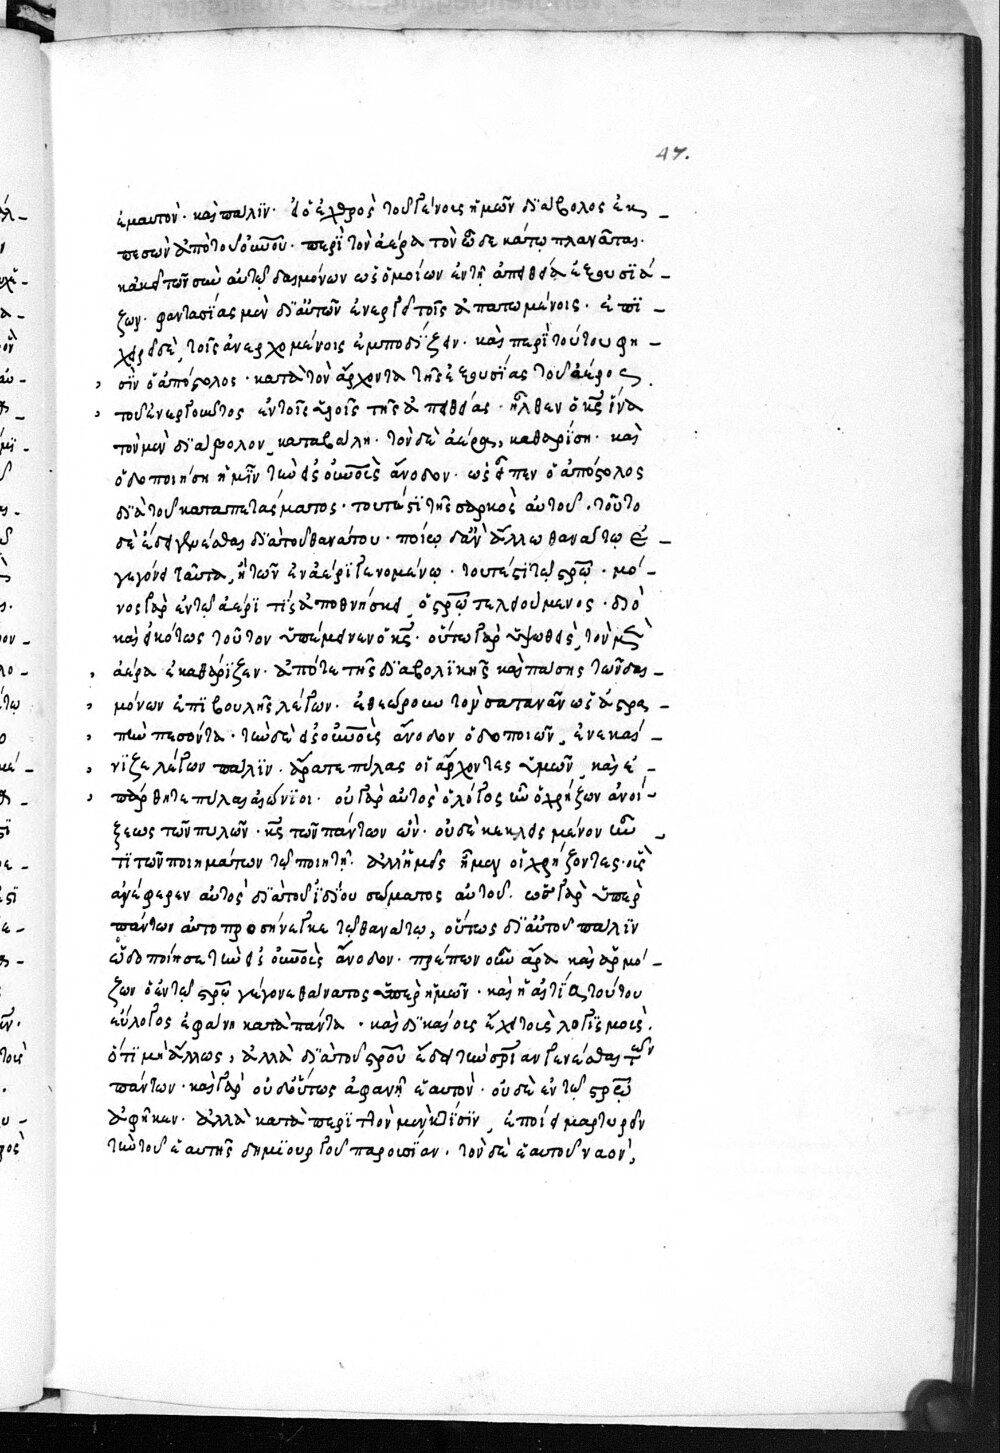 47.
ἐμαυτόν· καὶ πάλιν· εἰ ὁ ἐχθρὸς τοῦ γένους ἡμῶν διάβολος ἐκ
πεσὼν ἀπὸ τοῦ οὐνοῦ· περὶ τὸν ἀέρα τὸν ὧδε κάτω πλανᾶται·
κἀκεῖ τῶν σὺν αὐτῷ δαιμόνων ὡς ὁμοίων ἐν τῇ ἀπειθείᾳ ἐξουσιά
ζων· φαντασίας μὲν δι' αὐτῶν ἐνεργεῖ τοῖς ἀπατωμένοις· ἐπι
χειρεῖ δὲ, τοῖς ἀνερχομένοις ἐμποδίζειν· καὶ περὶ τούτου φη
σὶν ὁ ἀπόστολος· κατὰ τὸν ἄρχοντα τῆς ἐξουσίας τοῦ ἀέρος
τοῦ ἐνεργοῦντος ἐν τοῖς υἱοῖς τῆς ἀπειθείας· ἦλθεν ὁ κς ἵνα
τὸν μὲν διάβολον καταβάλῃ· τὸν δὲ ἀέρα, καθαρίσῃ· καὶ
ὁδοποιήσῃ ἡμῖν τὴν εἰς οὐνοὺς ἄνοδον· ὡς εἶπεν ὁ ἀπόστολος
διὰ τοῦ καταπετάσματος· τουτέστι τῆς σαρκὸς αὐτοῦ· τοῦτο
δὲ ἔδει γενέσθαι διὰ τοῦ θανάτου· ποίῳ δ' ἂν ἄλλῳ θανάτῳ ἐ
γεγόνει ταῦτα, ἢ τῷ ἐν ἀέρι γενομένῳ· τουτέστι τῷ στρῷ· μό
νος γὰρ ἐν τῷ ἀέρι τίς ἀποθνήσκει, ὁ στρῷ τελειούμενος· διὸ
καὶ εἰκότως τοῦτον ὑπέμεινεν ὁ κς· οὕτω γὰρ ὑψωθεὶς, τὸν μὲν
ἀέρα ἐκαθάριζεν· ἀπό τε τῆς διαβολικῆς καὶ πάσης τῶν δαι
μόνων ἐπιβουλῆς λέγων· ἐθεώρουν τὸν σατανᾶν ὡς ἀστρα
πὴν πεσόντα· τὴν δὲ εἰς οὐνοὺς ἄνοδον ὁδοποιῶν, ἐνεκαί
νιζε λέγων πάλιν· ἄρατε πύλας οἱ ἄρχοντες ὑμῶν, καὶ ἐ
πάρθητε πύλαι αἰώνιοι· οὐ γὰρ αὐτὸς ὁ λόγος ἦν ὁ χρῄζων ἀνοί
ξεως τῶν πυλῶν· κς τῶν πάντων ὤν· οὐδὲ κεκλεισμένον ἦν
τι τῶν ποιημάτων τῷ ποιητῇ· ἀλλ' ἡμεῖς ἦμεν οἱ χρῄζοντες· οὓς
ἀνέφερεν αὐτὸς διὰ τοῦ ἰδίου σώματος αὐτοῦ· ὡς γὰρ ὑπὲρ
πάντων αὐτὸ προσήνεγκε τῷ θανάτῳ, οὕτως δι' αὐτοῦ πάλιν
ὡδοποίησε τὴν εἰς οὐνοὺς ἄνοδον· πρέπων οὖν ἄρα καὶ ἁρμό
ζων ὁ ἐν τῷ στρῷ γέγονε θάνατος ὑπὲρ ἡμῶν· καὶ ἡ αἰτία τούτου
εὔλογος ἐφάνη κατὰ πάντα· καὶ δικαίους ἔχει τοὺς λογισμούς·
ὅτι μὴ ἄλλως, ἀλλὰ διὰ τοῦ στροῦ ἔδει τὴν σρίαν γενέσθαι τῶν
πάντων· καὶ γὰρ οὐδ' οὕτως ἀφανῆ ἑαυτὸν· οὐδὲ ἐν τῷ στρῷ
ἀφῆκεν· ἀλλὰ καὶ περιττὸν μὲν κτίσιν, ἐποίει μαρτυρεῖν
τὴν τοῦ ἑαυτῆς δημιουργοῦ παρουσίαν· τὸν δὲ ἑαυτοῦ ναὸν,